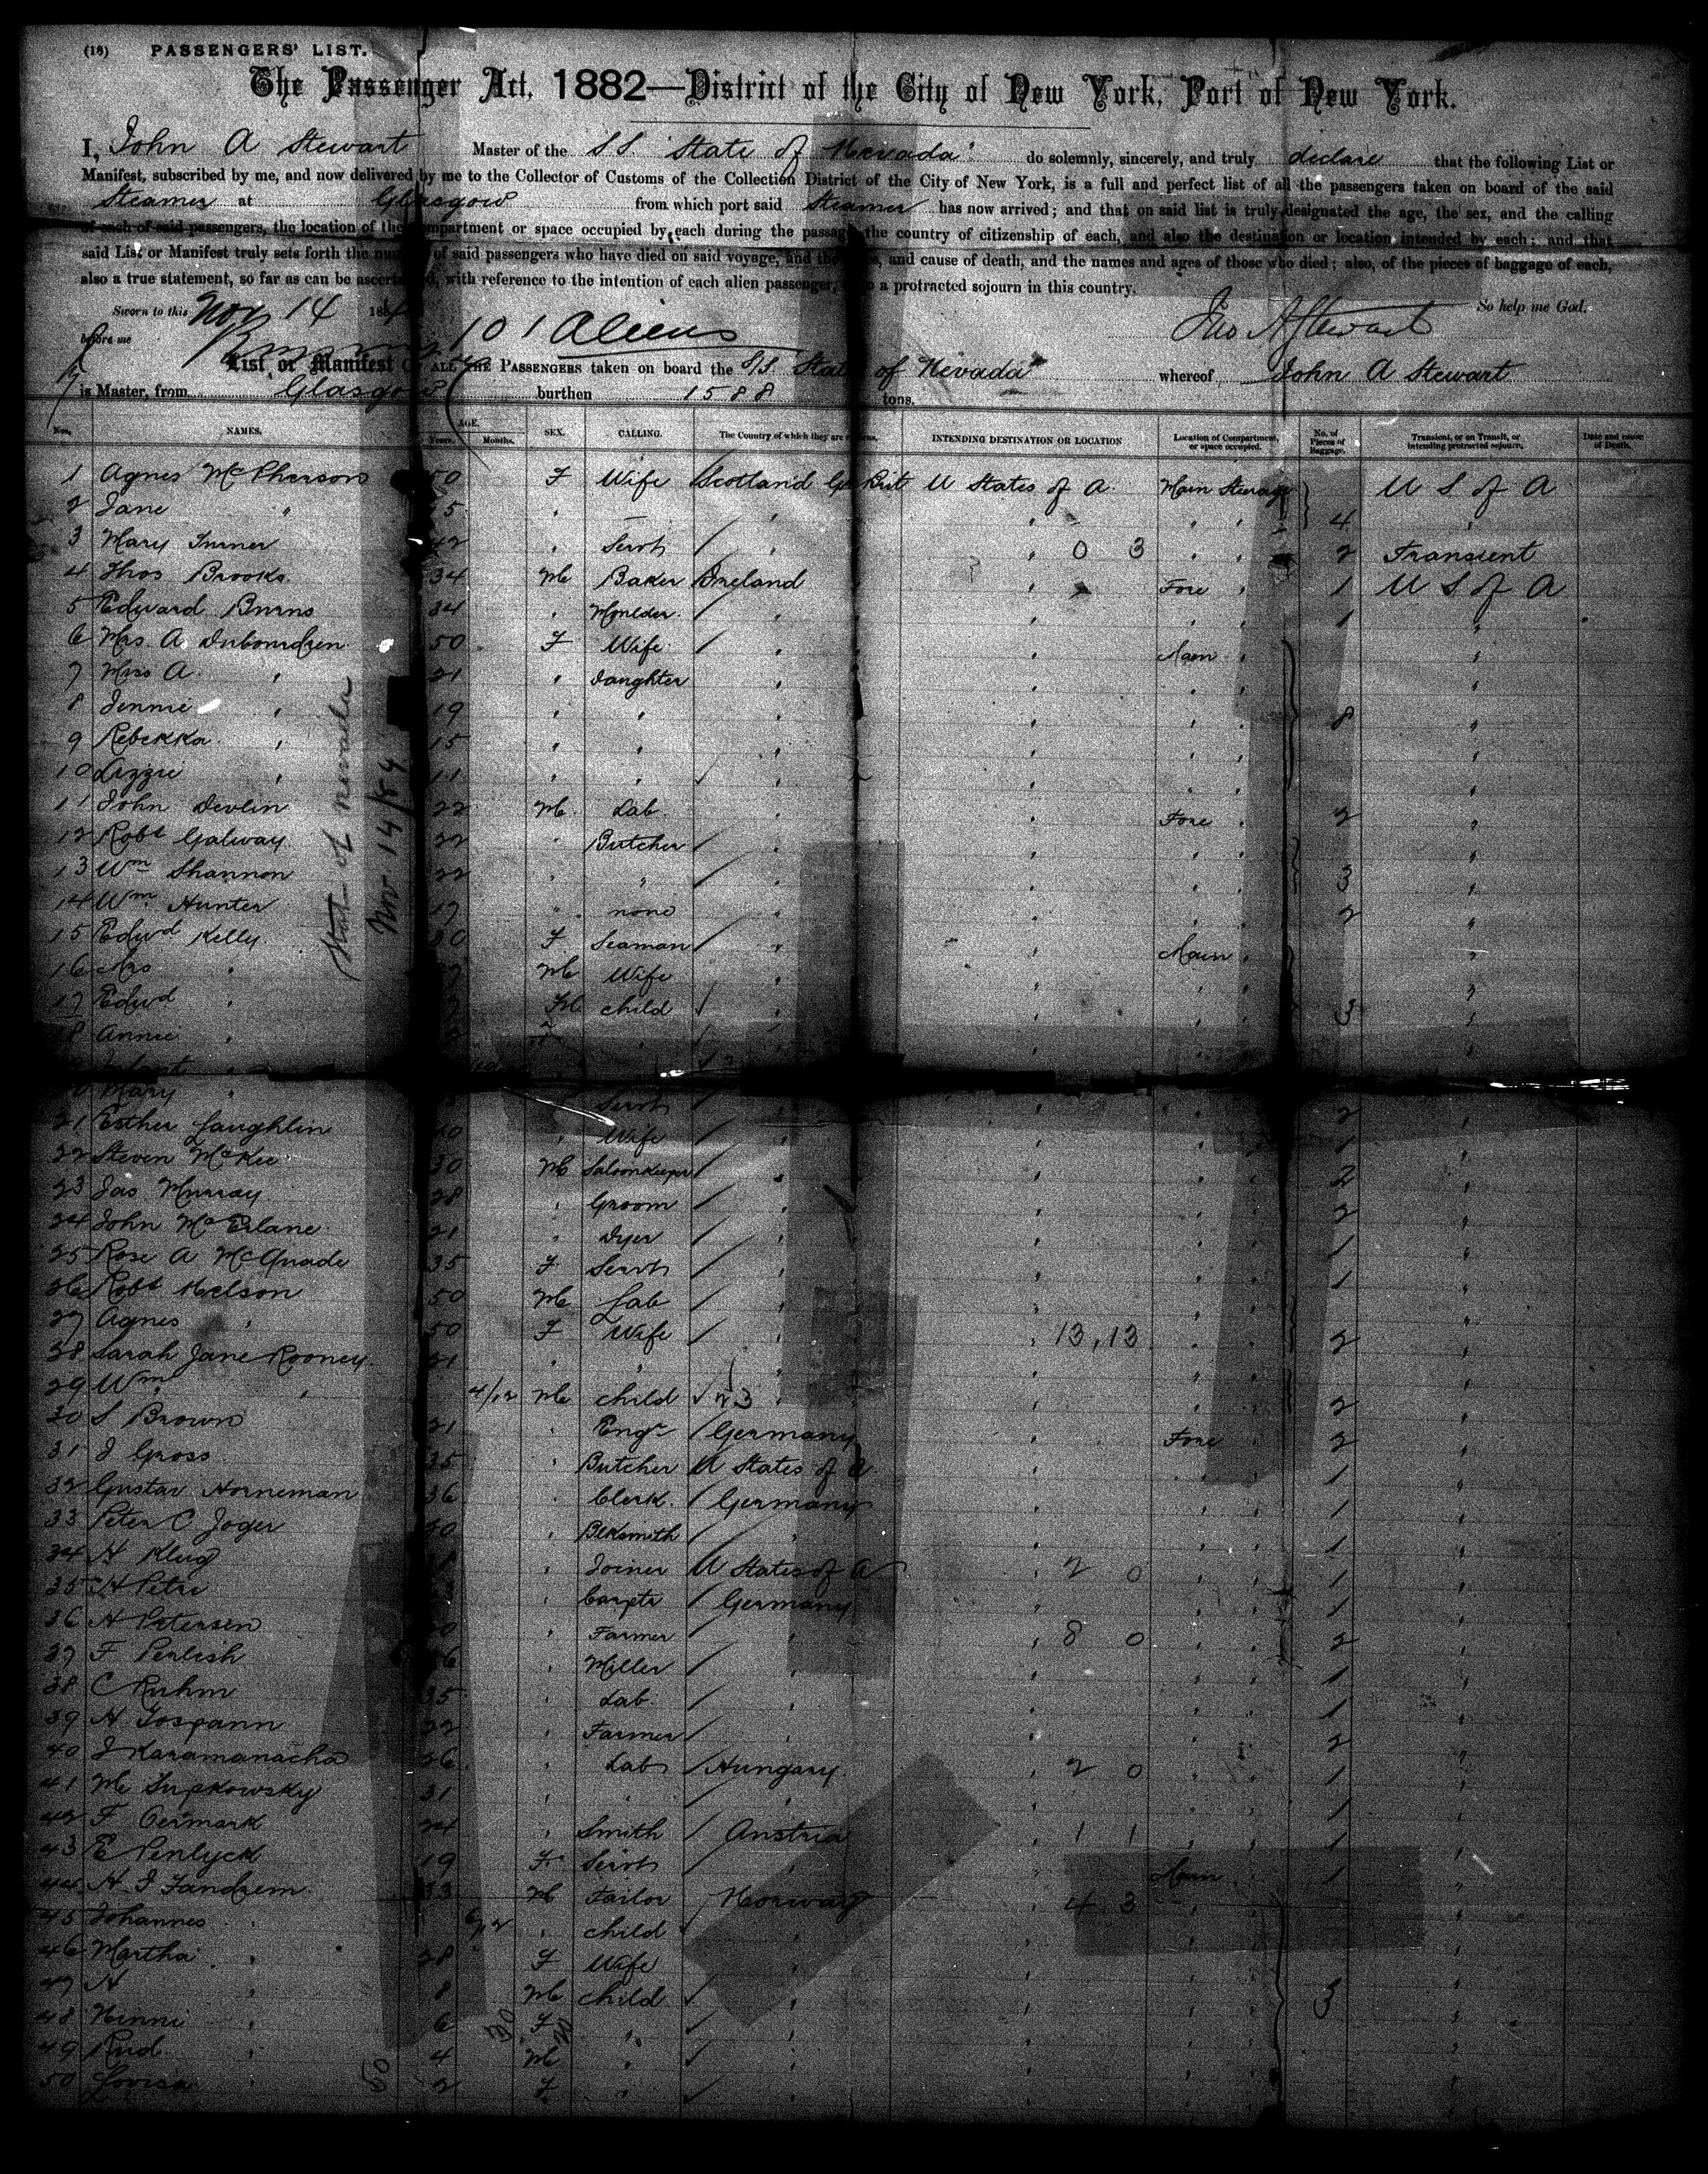 (18) PASSENGERS' LIST.
The Passenger Act, 1882—District of the City of New York, Port of New York.
I, John A Stewart Master of the SS "State of Nevada" do solemnly, sincerely, and truly declare that the following List or
Manifest, subscribed by me, and now delivered by me to the Collector of Customs of the Collection District of the City of New York, is a full and perfect list of all the passengers taken on board of the said
Steamer at Glasgow from which port said Steamer has now arrived; and that on said list is truly designated the age, the sex, and the calling
of each of said passengers, the location of the compartment or space occupied by each during the passage, the country of citizenship of each, and also the destination or location intended by each; and that
said List or Manifest truly sets forth the number of said passengers who have died on said voyage, and the , and cause of death, and the names and ages of those who died; also, of the pieces of baggage of each,
also a true statement, so far as can be ascertained, with reference to the intention of each alien passenger, to a protracted sojourn in this country.
So help me God.
Sworn to this Nov 14 1884
Jno A Stewart
before me
101 Aliens
List or Manifest OF ALL THE PASSENGERS taken on board the S.S. State of Nevada whereof John A Stewart
is Master, from Glasgow burthen 1588 tons.
Nos. NAMES. AGE. Years. Months. SEX. CALLING. The Country of which they are citizens. INTENDING DESTINATION OR LOCATION Location of Compartment, or space occupied. No. of Pieces of Baggage. Transient, or on Transit, or intending protracted sojourn. Date and cause of Death.
1 Agnes McPherson 50 F Wife Scotland Gt Brit U States of A. Main Steerage U S of A
2 Jane " " " " " 4 "
3 Mary Turner 42 " Servt / " " 0 3 " " 2 Transient
4 Thos Brooks 34 M Baker Ireland " Fore " 1 U S of A
5 Edward Burns 34 " Moulder / " " " " 1 "
6 Mrs. A. 50 F Wife / " " Main " "
7 Miss A. " 21 " daughter " " " " "
8 Jennie " 19 " " " " " " 8 "
9 Rebekka " 15 " " " " " " "
10 Lizzie " 11 " " ✓ " " " " "
11 John Devlin 22 M. Lab. " " Fore " 2 "
12 Robt Galway 22 " Butcher / " " " " "
13 Wm Shannon 22 " " / " " " " 3 "
14 Wm Hunter 17 " none " " " " 2 "
15 Edwd Kelly F Seaman / " " Main " "
16 Mrs " M Wife " " " " "
17 Edwd " M child / " " " " 3 "
18 Annie " F " " " " " "
Infant "
20 Mary " Servt / " " " " 2 "
21 Esther Laughlin " Wife / " " " " 1 "
22 Steven McKee 30 M Saloonkeeper / " " " " 2 "
23 Jas Murray 28 " Groom / " " " " 2 "
24 John McErlane 21 " Dyer / " " " " 1 "
25 Rose A McQuade 35 F Servt / " " " " 1 "
26 Robt Nelson 50 M Lab / " " " " "
27 Agnes " 50 F Wife / " " 13,13 " " 2 "
28 Sarah Jane Rooney 21 " " " " " " "
29 Wm " 4/12 M child ✓ 23 " " " " 2 "
30 S Brown 21 " Engr / Germany " Fore " 2 "
31 J Gross 35 " Butcher U States of A " " " 1 "
32 Gustav Horneman 36 " Clerk / Germany " " " 1 "
33 Peter C Joger " Blksmith / " " " " 1 "
34 H Klug " Joiner U States of A " 2 0 " " 1 "
35 H Petri " Carptr / Germany " " " 1 "
36 H Petersen " Farmer / " " 8 0 " " 2 "
37 F Perlish " Miller / " " " " 1 "
38 C Ruhm 35 " Lab. / " " " " 1 "
39 H 22 " Farmer / " " " " 2 "
40 J Karamanacha 26 " Lab / Hungary " 2 0 " " 1 "
41 M Lupkowsky 31 " " / " " " " 1 "
42 F Cermark 24 " Smith / Austria " 1 1 " " 1 "
43 E Penlyck 19 F Servt / " " Main " 1 "
44 H J Tandrem 33 M Tailor / Norway " 4 3 " " "
45 Johannes " 6/12 " child ✓ " " " " "
46 Martha " 28 F Wife " " " " "
47 H " 8 M child ✓ " " " " 3 "
48 Ninni " 6 F " ✓ " " " " "
49 Rud " 4 M " ✓ " " " " "
50 Lovisa " 2 F " ✓ " " " " "
State of Nevada
Nov 14/84
50
30
20